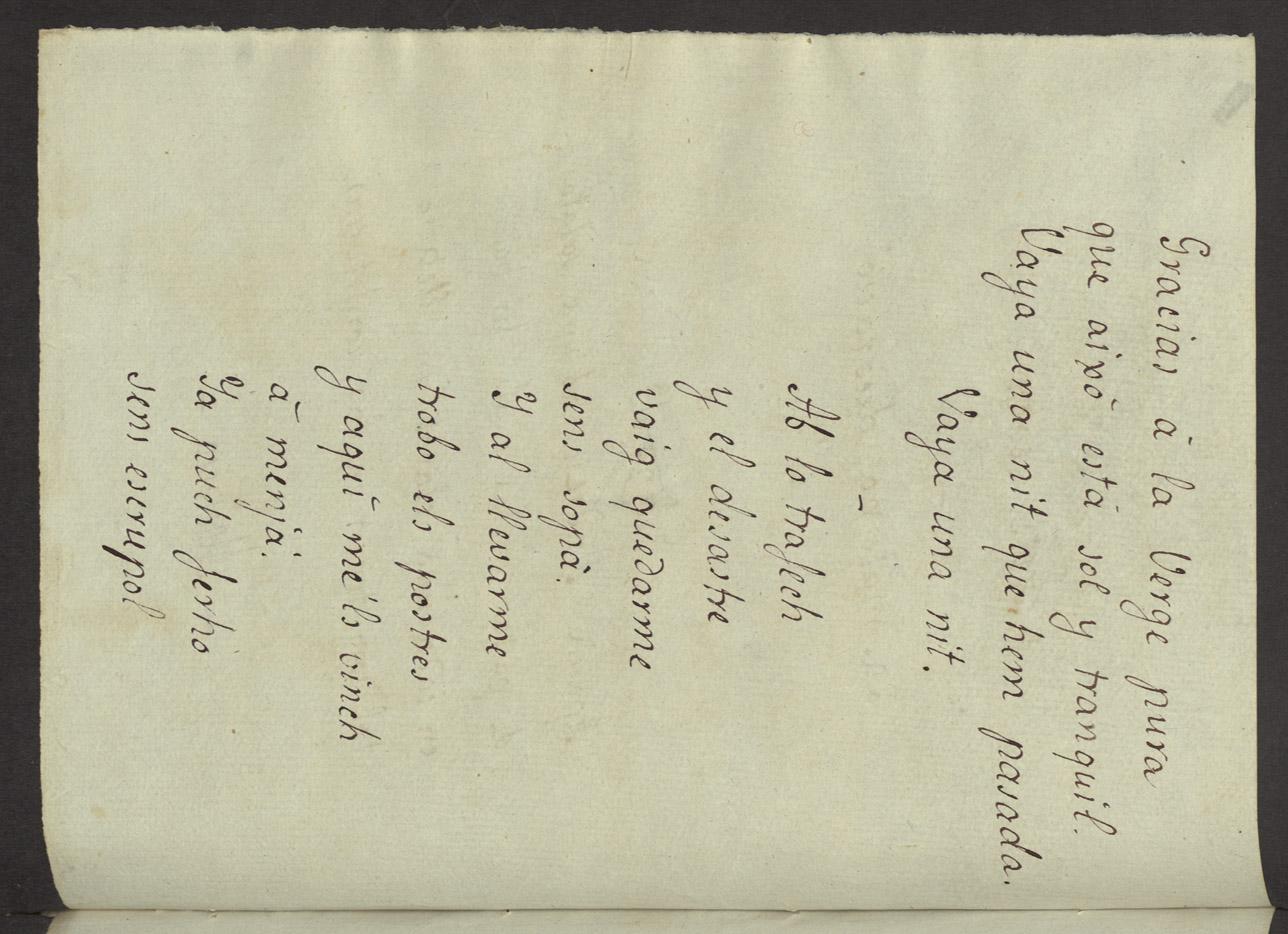 Gracias á la Verge pura
que aixó está sol y tranquil.
Vaya una nit que hem pasada.
Vaya una nit.
–
Ab lo trafech
y el desastre
vaig quedarme
sens sopá.
Y al llevarme
trobo els postres
y aquí me'ls vinch
á menjá.
Ja puch ferho
sens escrupol